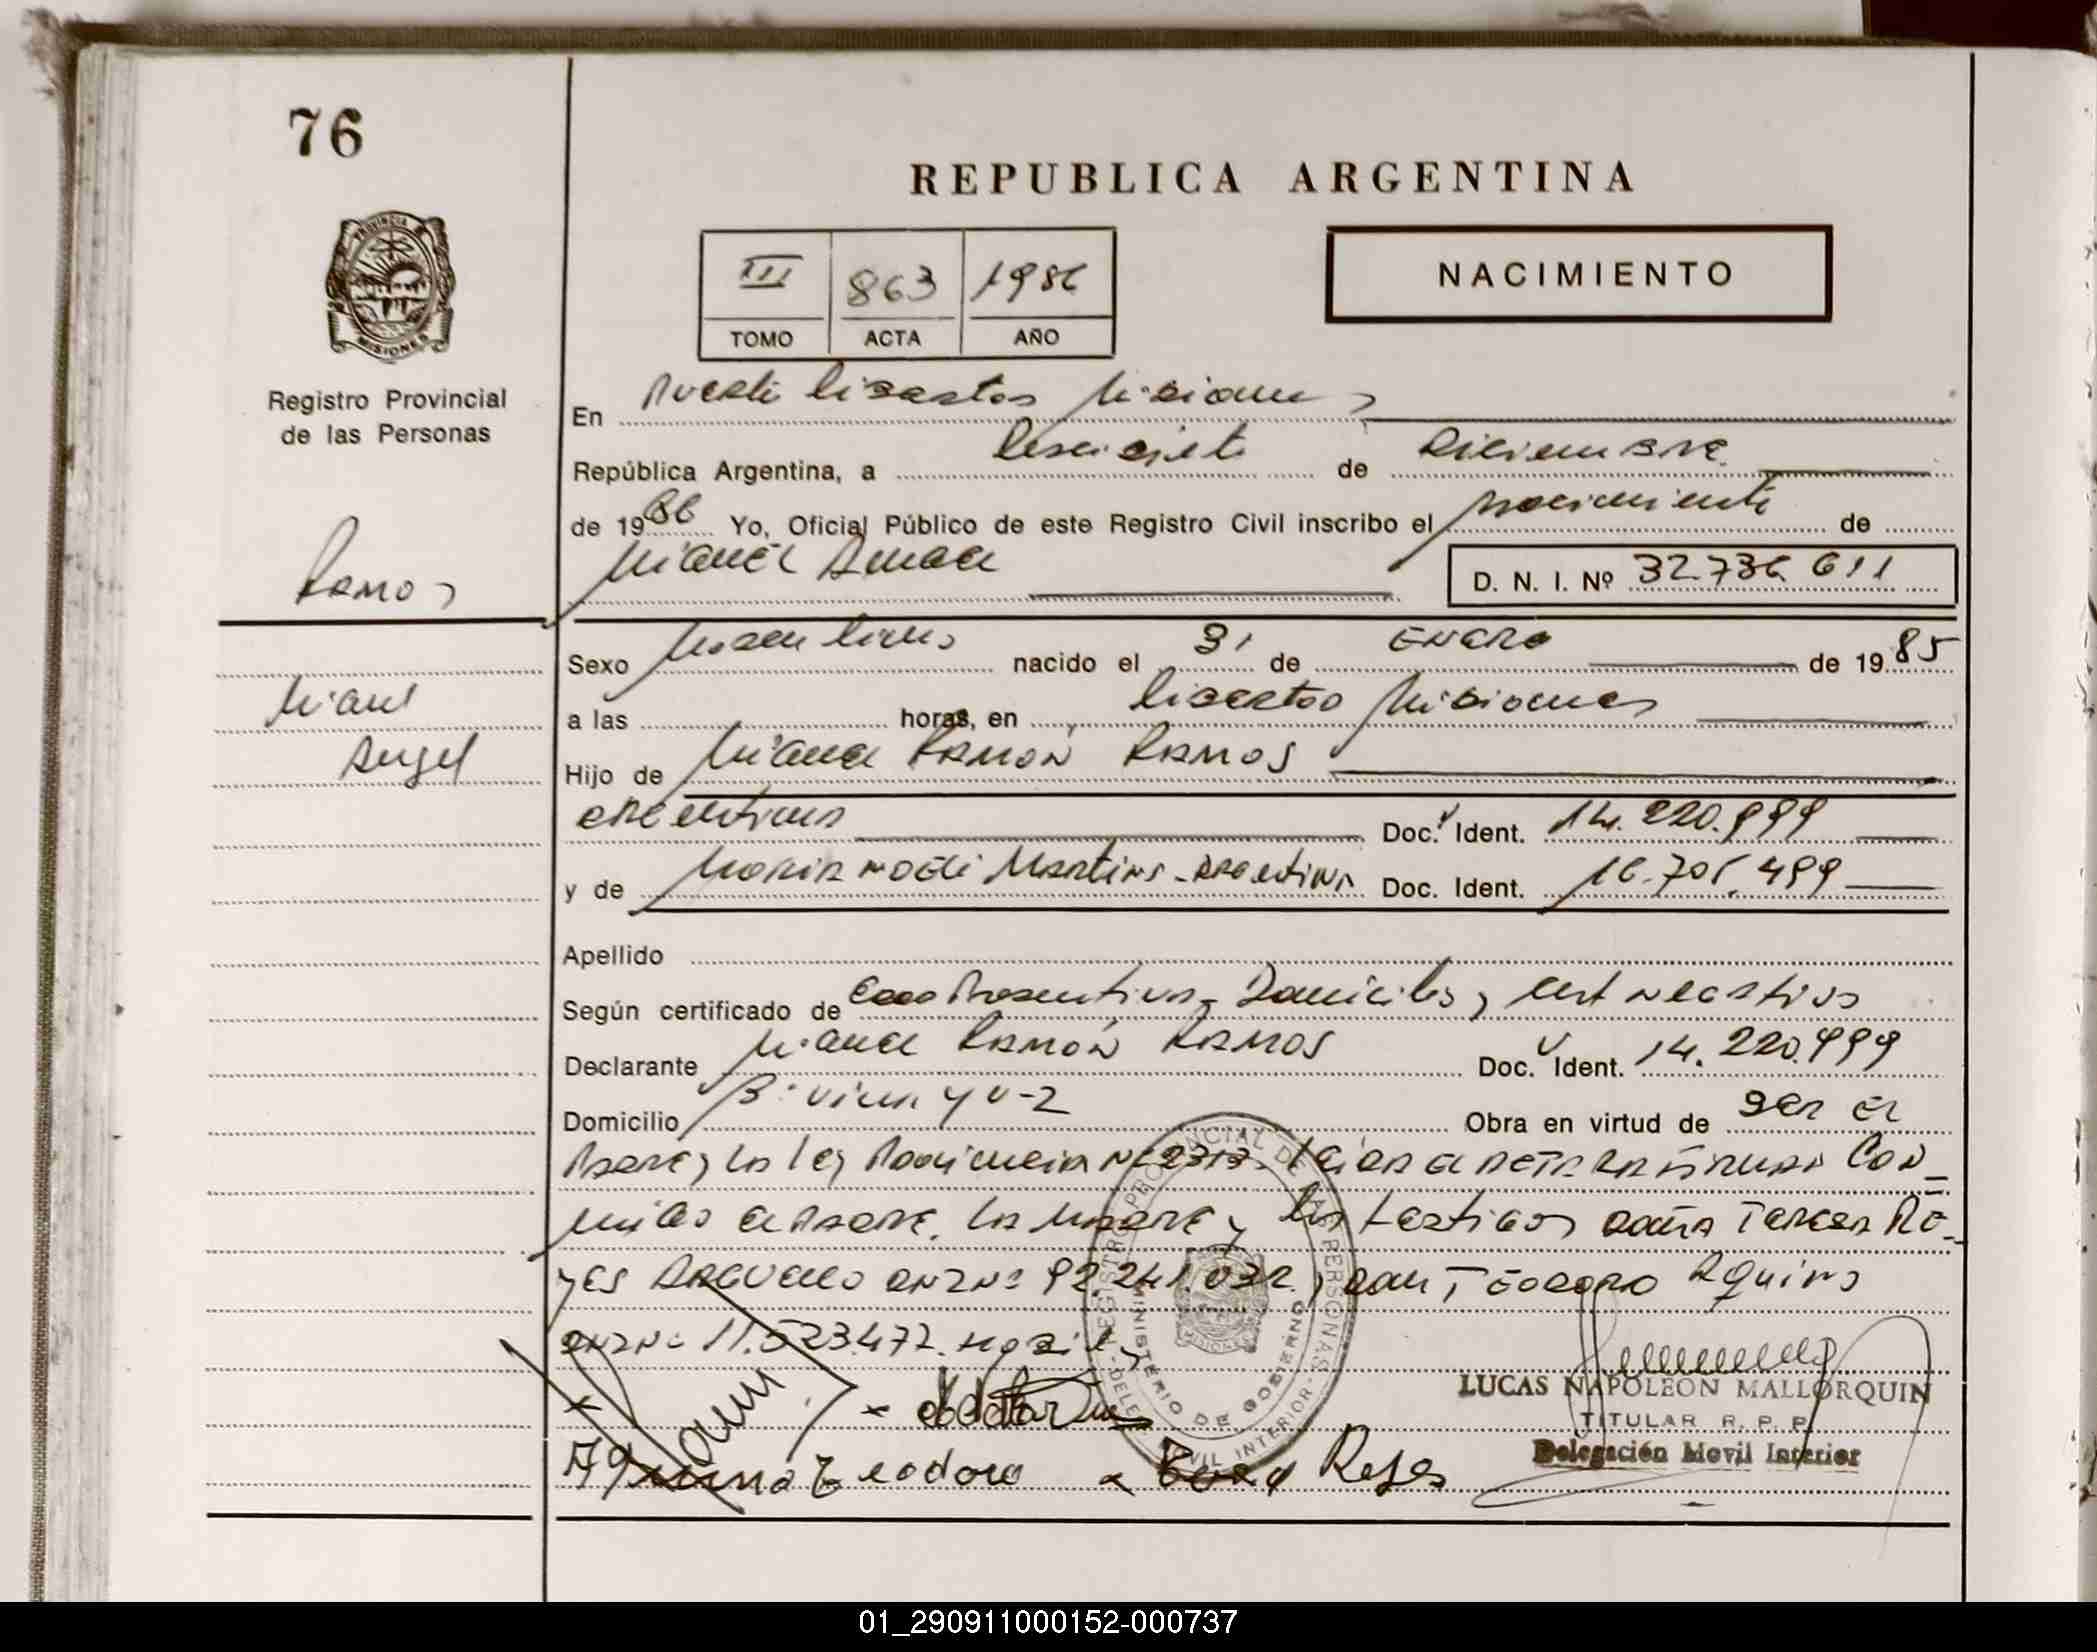 76
REPUBLICA ARGENTINA
III 863 1986
TOMO ACTA AÑO
NACIMIENTO
PROVINCIA DE
MISIONES
Registro Provincial
de las Personas
Ramos
Miguel
Angel
En Puerto Libertad Misiones
República Argentina, a de Diciembre
de 1986 Yo, Oficial Público de este Registro Civil inscribo el nacimiento de
Miguel Angel
D. N. I. Nº 32.736.611
Sexo Masculino nacido el 31 de Enero de 1985
a las horas, en Libertad Misiones
Hijo de Miguel Ramón Ramos
argentino Doc. Ident. 14.220.999
y de Maria Martins - argentina Doc. Ident. 16.701.499
Apellido
Según certificado de Domicilio y cert negativo
Declarante Miguel Ramón Ramos Doc. Ident. 14.220.999
Domicilio Obra en virtud de ser el
Padre y la ley Provincial Nº 2313. Leida el acta la firman Con-
migo el Padre, la Madre y los testigos doña Teresa Re-
yes Arguello DNI Nº 92.241.032 y don Teodoro Aquino
DNI Nº 11.523.477.
REGISTRO PROVINCIAL DE LAS PERSONAS
MINISTERIO DE GOBIERNO
CIVIL INTERIOR
LUCAS NAPOLEON MALLORQUIN
TITULAR R. P. P.
Delegación Movil Interior
Aquino Teodoro Reyes
01_290911000152-000737